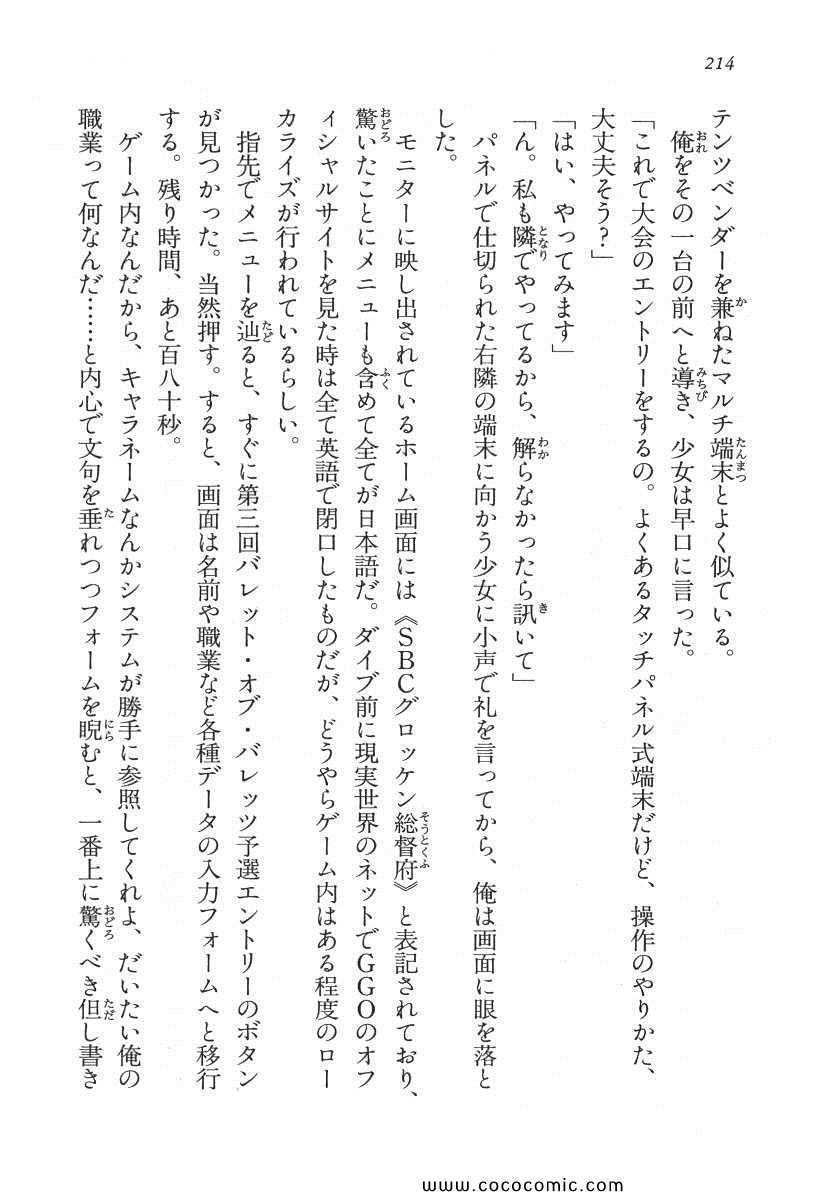 214
テンツベンダーを兼ねたマルチ端末とよく似ている。
　俺をその一台の前へと導き、少女は早口に言った。
「これで大会のエントリーをするの。よくあるタッチパネル式端末だけど、操作のやりかた、
大丈夫そう？」
「はい、やってみます」
「ん。私も隣でやってるから、解らなかったら訊いて」
　パネルで仕切られた右隣の端末に向かう少女に小声で礼を言ってから、俺は画面に眼を落と
した。
　モニターに映し出されているホーム画面には《ＳＢＣグロッケン総督府》と表記されており、
驚いたことにメニューも含めて全てが日本語だ。ダイブ前に現実世界のネットでＧＧＯのオフ
ィシャルサイトを見た時は全て英語で閉口したものだが、どうやらゲーム内はある程度のロー
カライズが行われているらしい。
　指先でメニューを辿ると、すぐに第三回バレット・オブ・バレッツ予選エントリーのボタン
が見つかった。当然押す。すると、画面は名前や職業など各種データの入力フォームへと移行
する。残り時間、あと百八十秒。
　ゲーム内なんだから、キャラネームなんかシステムが勝手に参照してくれよ、だいたい俺の
職業って何なんだ……と内心で文句を垂れつつフォームを睨むと、一番上に驚くべき但し書き
www.cococomic.com